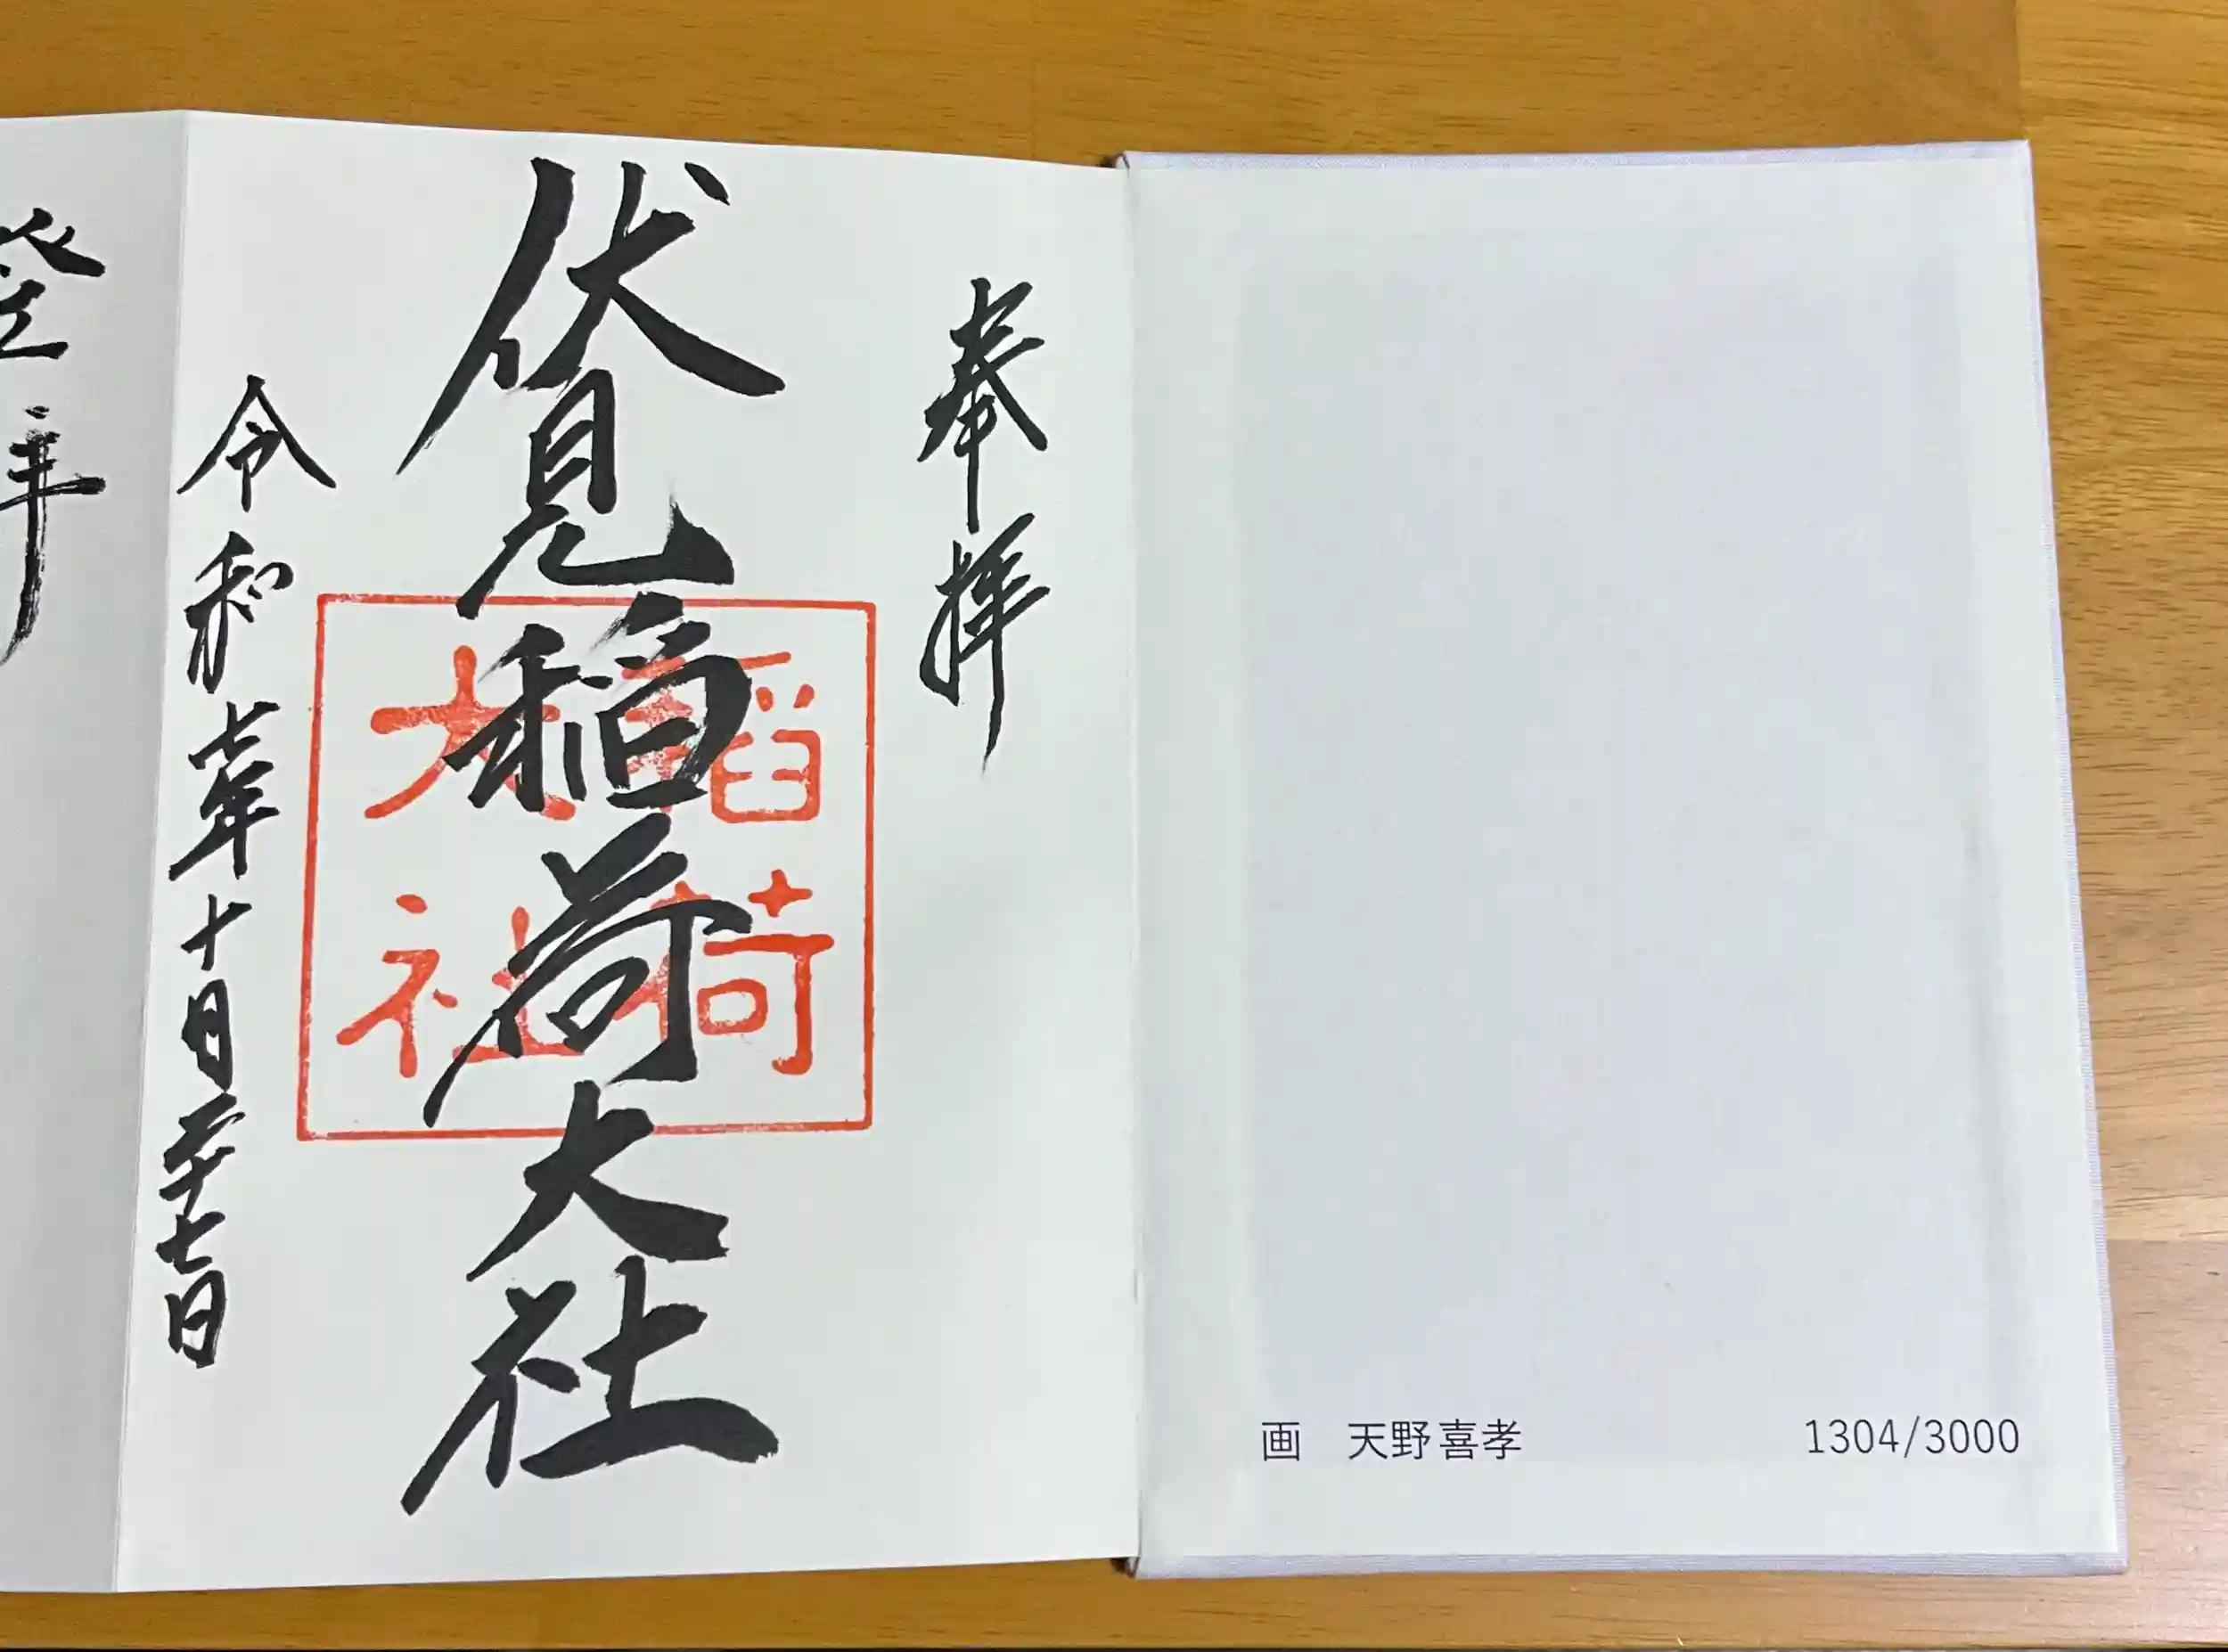 奉拝
伏見稲荷大社
稲荷
大社
令和 年十月二十七日
画 天野喜孝 1304/3000